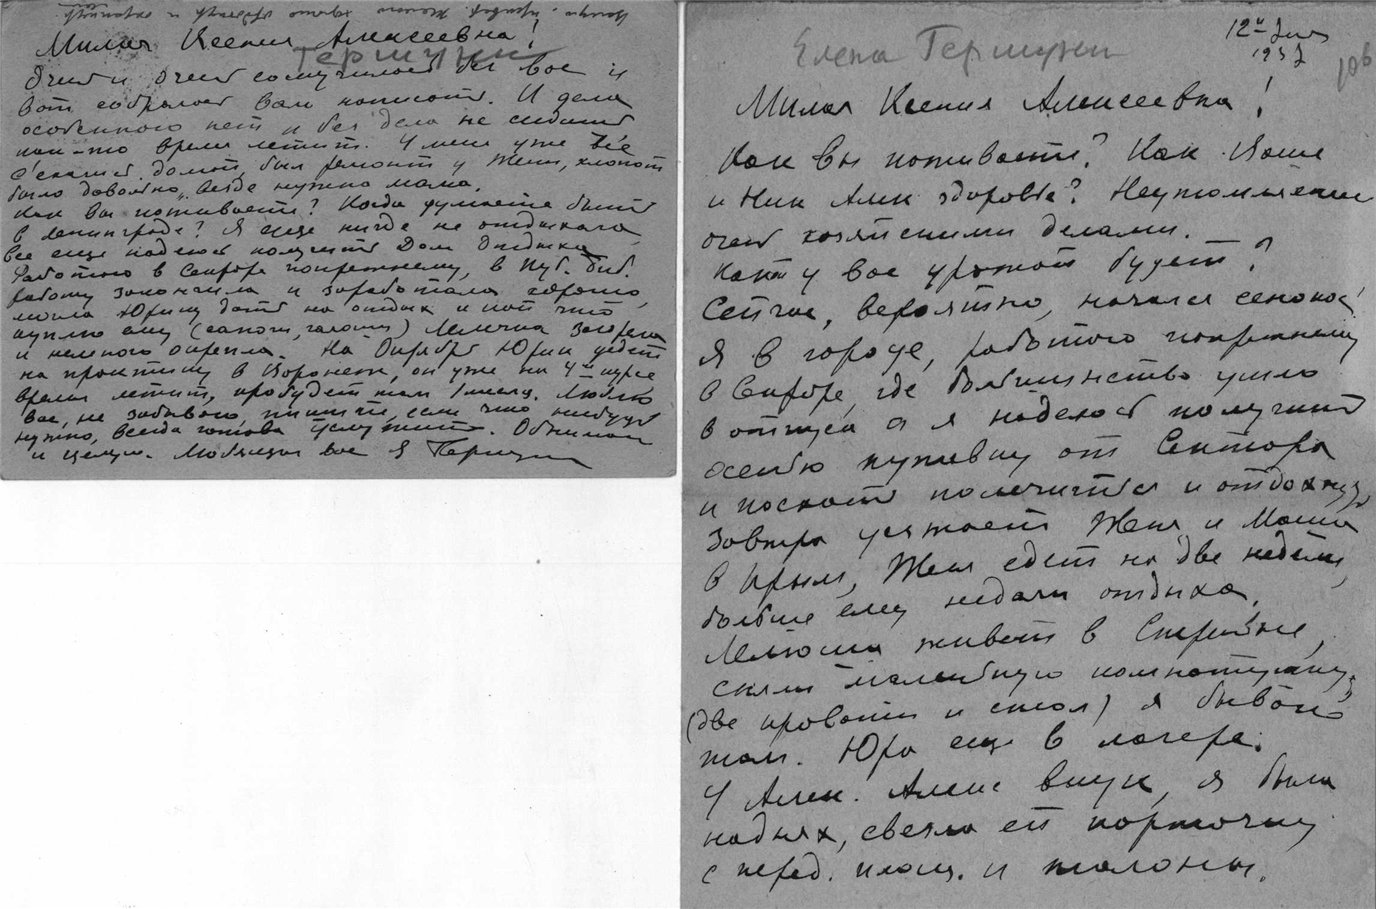 Милая Ксения Алексеевна!
Гершуни
Очень и очень соскучилась без вас и
вот собралась вам написать. И дела
особенного нет и без дела не сидишь
как-то время летит. У меня уже все
съехались домой, был ремонт у Жени, хлопот
было довольно, везде нужна мама.
Как вы поживаете? Когда думаете быть
в Ленинграде? Я еще нигде не отдыхала,
все еще надеюсь получить Дом Отдыха
Работаю в Секторе попрежнему, в Пуб. Биб.
работу закончила и заработала хорошо,
могла Юрику дать на отдых и кой что
куплю ему (сапоги, галоши) Лелечка загорела
и немного окрепла. На Октябрь Юрик уедет
на практику в Воронеж, он уже на 4м курсе
время летит, пробудет там 1 месяц. Люблю
вас, не забываю, пишите, если что нибудь
нужно, всегда готова услужить. Обнимаю
и целую. Любящая вас Я Гершуни
Елена Гершуни
12го
1937
106
Милая Ксения Алексеевна!
Как вы поживаете? Как Ваше
и Ник Алек здоровье? Неутомляетесь
очень хозяйскими делами.
Какой у вас урожай будет?
Сейчас, вероятно, начался сенокос!
Я в городе, работаю попрежнему
в Секторе, где большинство ушло
в отпуск а я надеюсь получить
осенью путевку от Сектора
и поехать полечиться и отдохнуть,
Завтра уезжает Женя и Маша
в Крым, Женя едет на две недели,
больше ему недали отдыха,
Лелюша живет в Стрельне,
сняли маленькую комнатушку,
(две кровати и стол) я бываю
там. Юра еще в лагере.
У Алек. Алекс внук, я была
наднях, свезла ей карточку
с перед. площ. и талоны.